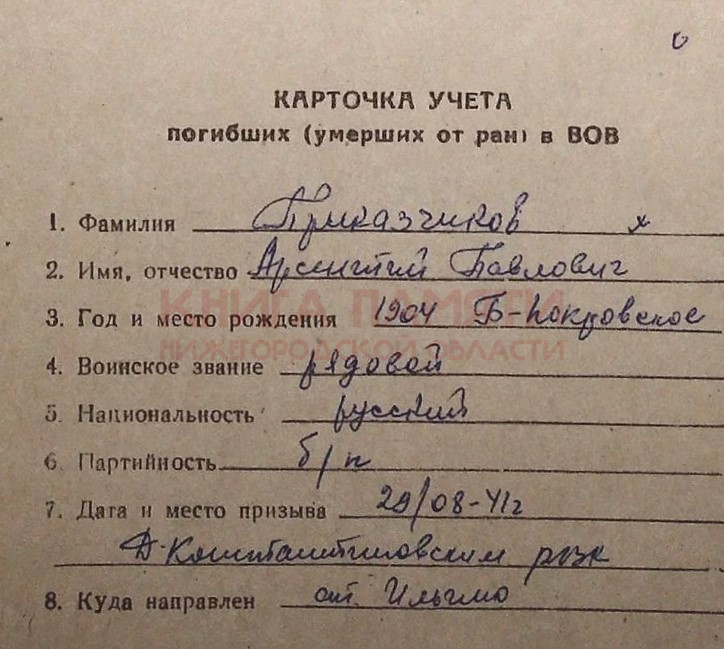 КАРТОЧКА УЧЕТА
погибших (умерших от ран) в ВОВ
1. Фамилия Приказчиков х
2. Имя, отчество Арсентий Павлович
КНИГА ПАМЯТИ
3. Год и место рождения 1904 Б-Покровское
НИЖЕГОРОДСКОЙ ОБЛАСТИ
4. Воинское звание рядовой
5. Национальность русский
6. Партийность б/п
7. Дата и место призыва 29/08-41г
Д-Константиновским рвк
8. Куда направлен ст. Ильино